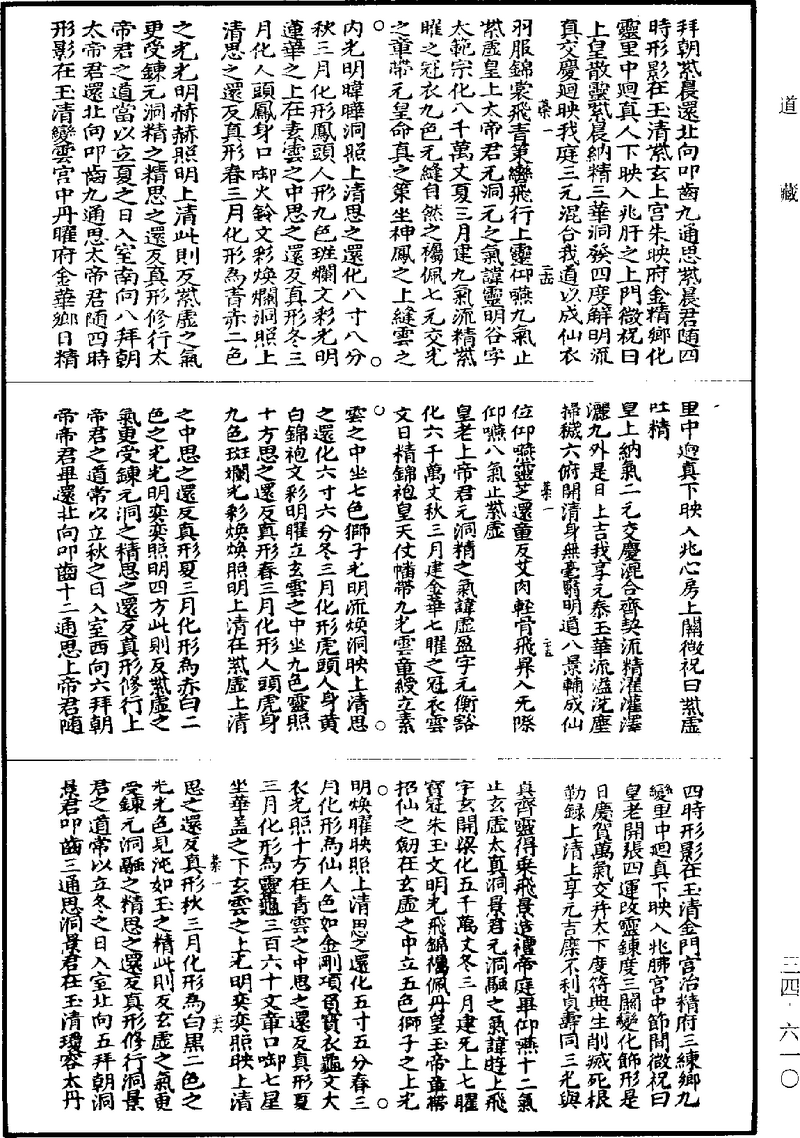 道藏
三四·六一〇
拜朝紫晨還北向叩齒九通思紫晨君隨四
時形影在玉清紫玄上宮朱映府金精鄉化
靈里中迴真人下映入兆肝之上門微祝曰
上皇散靈紫晨納精三華洞發四度解明流
真交慶迴映我庭三元混合我道以成仙衣
羽服錦裳飛青策轡飛行上靈仰嚥九氣止
紫虛皇上太帝君元洞元之氣諱靈明谷字
太範宗化八千萬丈夏三月建九氣流精紫
曜之冠衣九色无縫自然之襡佩七元交光
之章帶元皇命真之策坐神鳳之上縫雲之
內光明暐曄洞照上清思之還化八寸八分
秋三月化形鳳頭人形九色班爛文彩光明
蓮華之上在素雲之中思之還反真形冬三
月化人頭鳳身口㗸火鈴文彩煥爛洞照上
清思之還反真形春三月化形為青赤二色
之光光明赫赫照明上清此則反紫虛之氣
更受鍊元洞精之精思之還反真形修行太
帝君之道當以立夏之日入室南向八拜朝
太帝君還北向叩齒九通思太帝君隨四時
形影在玉清變雲宮中丹曜府金華鄉日精
里中迴真下映入兆心房上關微祝曰紫虛
吐精
皇上納氣二元交慶混合齊契流精濯灌澤
灑九外是日上吉我享元泰玉華流溢洗塵
掃穢六府開清身無毫翳明道八景輔成仙
位仰嚥靈芝還童反艾肉輕骨飛昇入无際
仰嚥八氣止紫虛
皇老上帝君元洞精之氣諱虛盈字元衡谿
化六千萬丈秋三月建金華七曜之冠衣雲
文日精錦袍皇天仗幡帶九光雲童綬立素
雲之中坐七色獅子光明流煥洞映上清思
之還化六寸六分冬三月化形虎頭人身黃
白錦袍文彩明曜立玄雲之中坐九色靈照
十方思之還反真形春三月化形人頭虎身
九色斑爛光彩煥煥照明上清在紫虛上清
之中思之還反真形夏三月化形為赤白二
色之光光明奕奕照明四方此則反紫虛之
氣更受鍊元洞之精思之還反真形修行上
帝君之道常以立秋之日入室西向六拜朝
帝帝君畢還北向叩齒十二通思上帝君隨
四時形影在玉清金門宮治精府三練鄉九
變里中迴真下映入兆胇宮中節間微祝曰
皇老開張四運改靈鍊度三關變化飾形是
日慶賀萬氣交并太下度符典生削滅死根
勒録上清上享元吉麾不利貞壽同三光與
真齊靈得乘飛景造禮帝庭畢仰嚥十二氣
止玄虛太真洞景君元洞融之氣諱遊上飛
字玄開梁化五千萬丈冬三月建无上七曜
寶冠朱玉文明光飛錦襡佩丹皇玉帝章帶
招仙之劒在玄虛之中立五色獅子之上光
明煥曜映照上清思之還化五寸五分春三
月化形為仙人色如金剛項負寶衣龜文大
衣光照十方在青雲之中思之還反真形夏
三月化形為靈龜三百六十文章口㗸七星
坐華盖之下玄雲之上光明奕奕照映上清
思之還反真形秋三月化形為白黑二色之
光光色見沌如玉之精此則反玄虛之氣更
受鍊元洞融之精思之還反真形修行洞景
君之道常以立冬之日入室北向五拜朝洞
景君叩齒三通思洞景君在玉清瓊容太丹